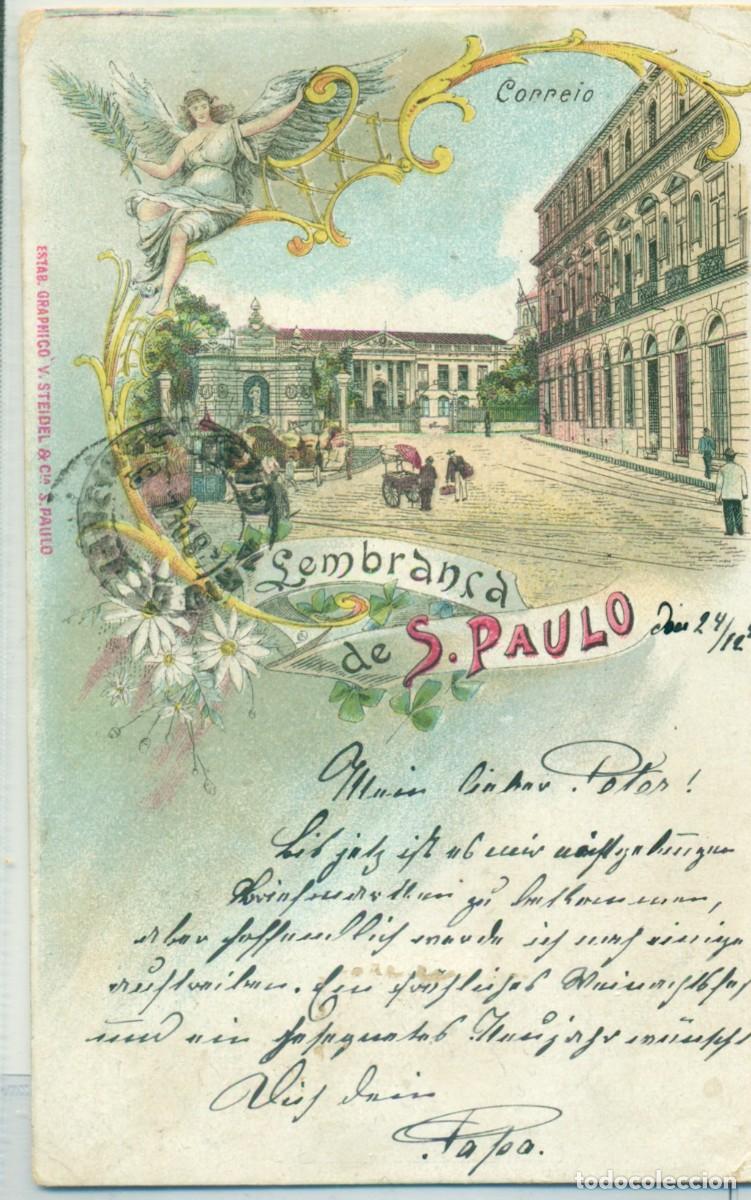 Correio
ESTAB. GRAPHICO V. STEIDEL & Cia S. PAULO
Lembrança
de S. PAULO
den 24/12
Mein lieber Peter!
Bis jetz ist es mir nicht gelungen
Briefmarken zu bekommen,
aber hoffendlich werde ich noch einige
auftreiben. Ein fröhliches Weinachtsfes
und ein gesegnetes Neujahr wünscht
Dich dein
Papa.
todocoleccion